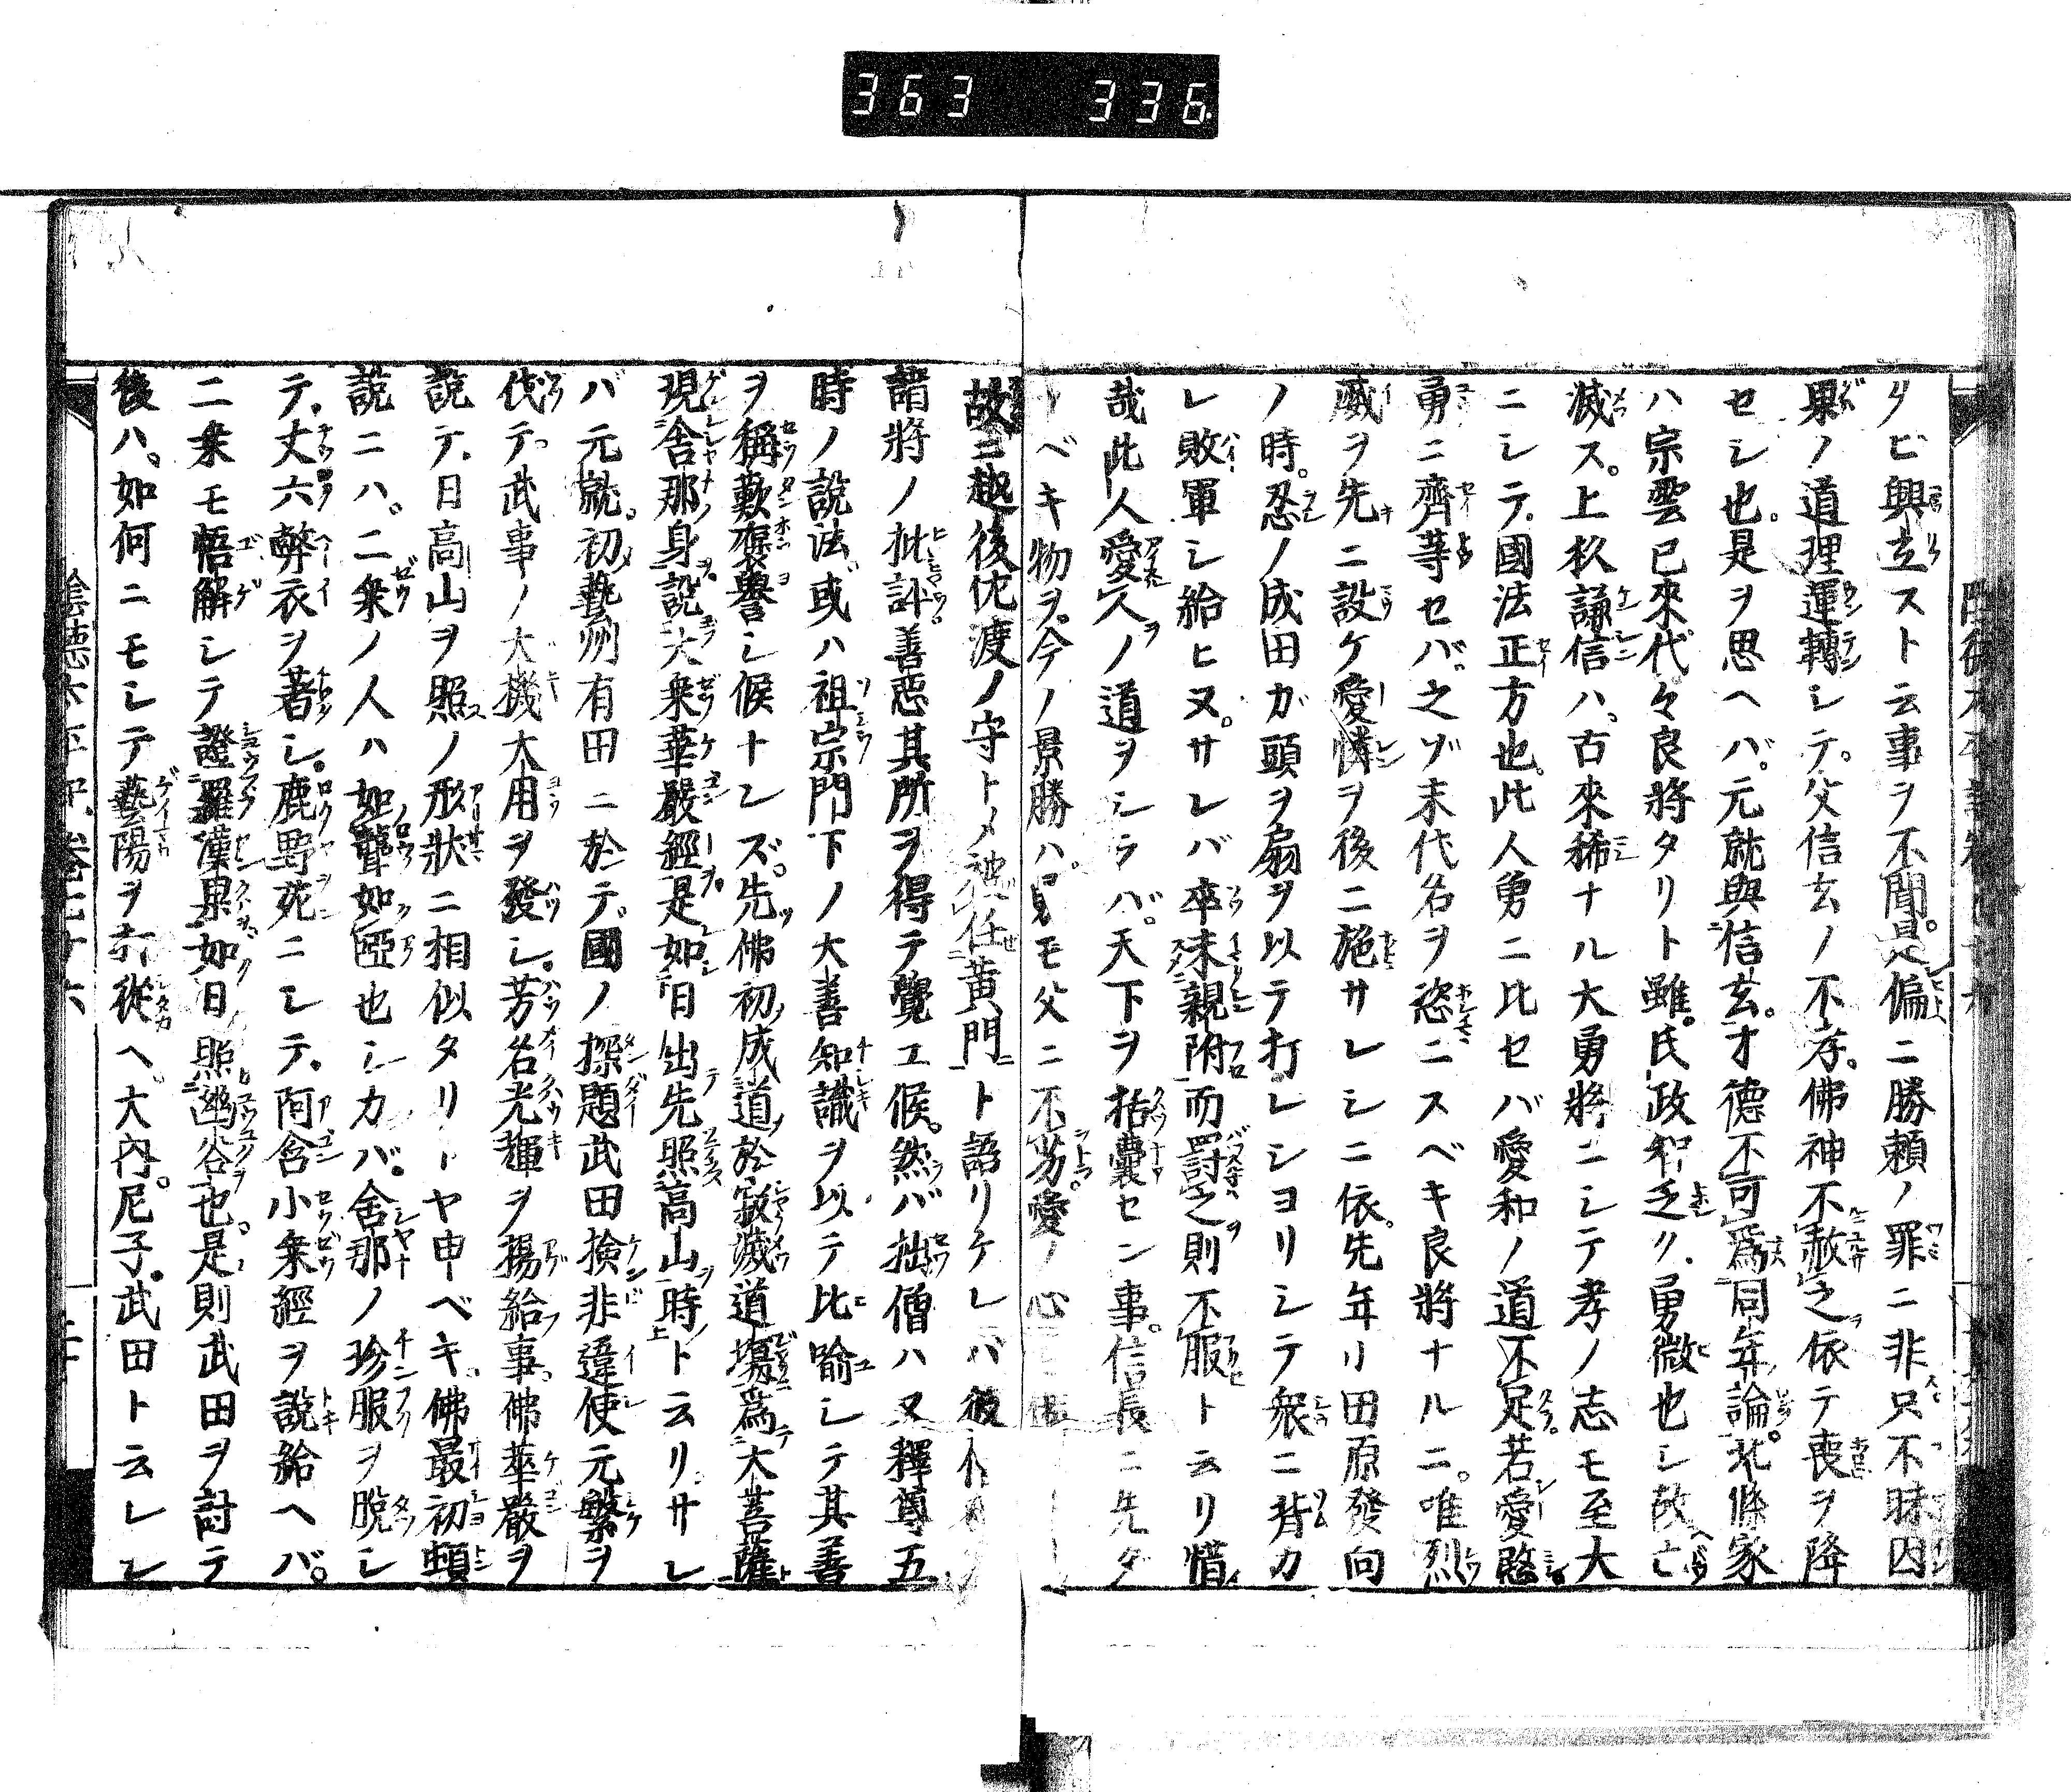 363 336
タビ興立スト云事ヲ不聞是偏ニ勝頼ノ罪ニ非只不昧因
果ノ道理運轉シテ父信玄ノ不孝佛神不赦之依テ喪ヲ降
セシ也是ヲ思ヘバ元就與信玄才德不可爲同年論北條家
ハ宗雲已來代々良將タリト雖氏政智乏ク勇微也シ故亡
滅ス上杉謙信ハ古來稀ナル大勇將ニシテ孝ノ志モ至大
ニシテ國法正方也此人勇ニ比セバ愛和ノ道不足若愛愍
勇ニ齊等セバ之ゾ末代名ヲ恣ニスベキ良將ナルニ唯烈
威ヲ先ニ設ケ愛憐ヲ後ニ施サレシニ依先年小田原發向
ノ時忍ノ成田ガ頭ヲ扇ヲ以テ打レシヨリシテ衆ニ背カ
レ敗軍シ給ヒヌサレバ卒未親附而罰之則不服ト云リ惜
哉此人愛人ノ道ヲシラバ天下ヲ括囊セン事信長ニ先タ
ベキ物ヲ今ノ景勝ハ勇モ父ニ不劣愛ノ心
故ニ越後佐渡ノ守トメ被任黄門ト語リケレバ彼
諸將ノ批評善惡其所ヲ得テ覺エ候然バ拙僧ハ又釋尊五
時ノ說法或ハ祖宗門下ノ大善知識ヲ以テ比喩シテ其善
ヲ稱歎褒譽シ候ナレズ先佛初成道於寂滅道場爲大菩薩
現舍那身說大乘華嚴經是如日出先照高山時ト云リサレ
バ元就初藝州有田ニ於テ國ノ探題武田撿非違使元繁ヲ
伐テ武事ノ大機大用ヲ發シ芳名光輝ヲ揚給事佛華嚴ヲ
說テ日高山ヲ照ノ形狀ニ相似タリトヤ申ベキ佛最初頓
說ニハ二乘ノ人ハ如聾如啞也シカバ舍那ノ珍服ヲ脫シ
テ丈六弊衣ヲ著シ鹿野苑ニシテ阿含小乘經ヲ說給ヘバ
二乘モ悟解シテ證羅漢果如日照幽谷也是則武田ヲ討テ
後ハ如何ニモシテ藝陽ヲ打從ヘ大内尼子武田ト云レシ
陰德太平記卷七十六